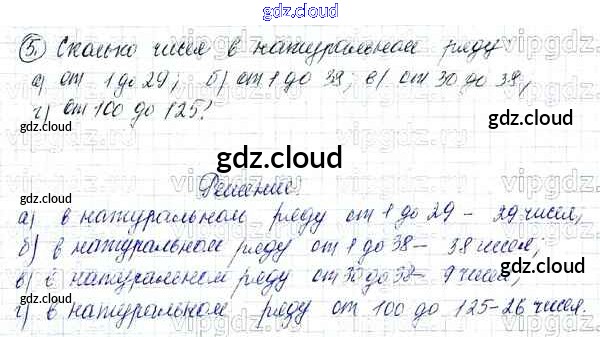 gdz.cloud
5. Сколько чисел в натуральном ряду
а) от 1 до 29; б) от 1 до 38; в) от 30 до 38,
г) от 100 до 125?
gdz.cloud
gdz.cloud
gdz.cloud
Решение.
а) в натуральном ряду от 1 до 29 - 29 чисел;
б) в натуральном ряду от 1 до 38 - 38 чисел;
gdz.cloud
gdz.cloud
в) в натуральном ряду от 30 до 38 - 9 чисел;
г) в натуральном ряду от 100 до 125 - 26 чисел.
gdz.cloud